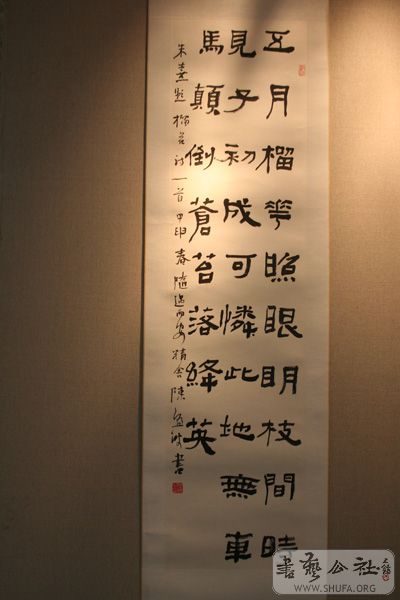 五月榴花照眼明枝間時
見子初成可憐此地無車
馬顛倒蒼苔落絳英
朱熹題榴花詩一首甲申春隨遇而安精舍陳
書
書藝公社
WWW.SHUFA.ORG